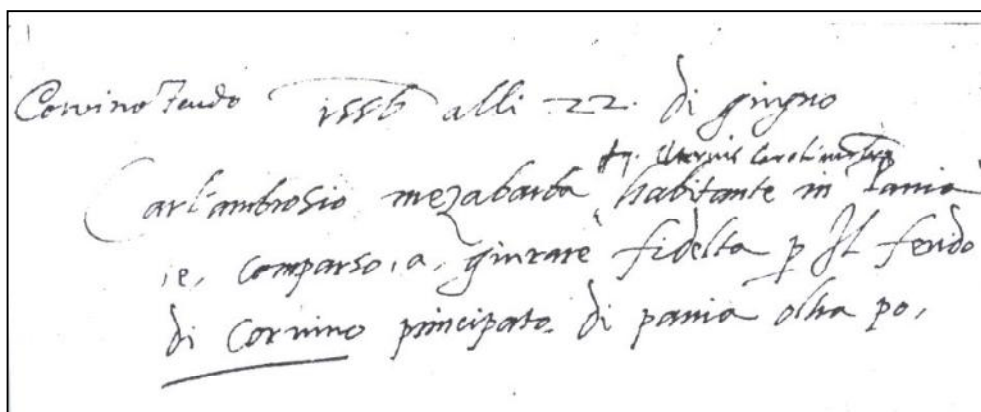 Corvino Feudo 1556 alli 22. di giugno
Carl'ambrosio mezabarba habitante in Pania
,e, comparso ,a, giurare fidelta p Il feudo
di Coruino principato di pauia oltra po,